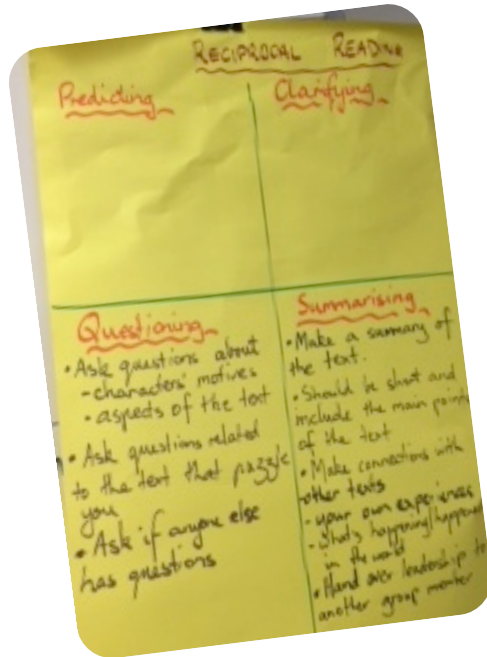 RECIPROCAL READING
Predicting
Clarifying
Questioning
• Ask questions about
- characters' motives
- aspects of the text
• Ask questions related
to the text that puzzle
you
• Ask if anyone else
has questions
Summarising
• Make a summary of
the text.
• Should be short and
include the main points
of the text
• Make connections with
other texts
- your own experiences
- what's happening/happened
in the world
• Hand over leadership to
another group member